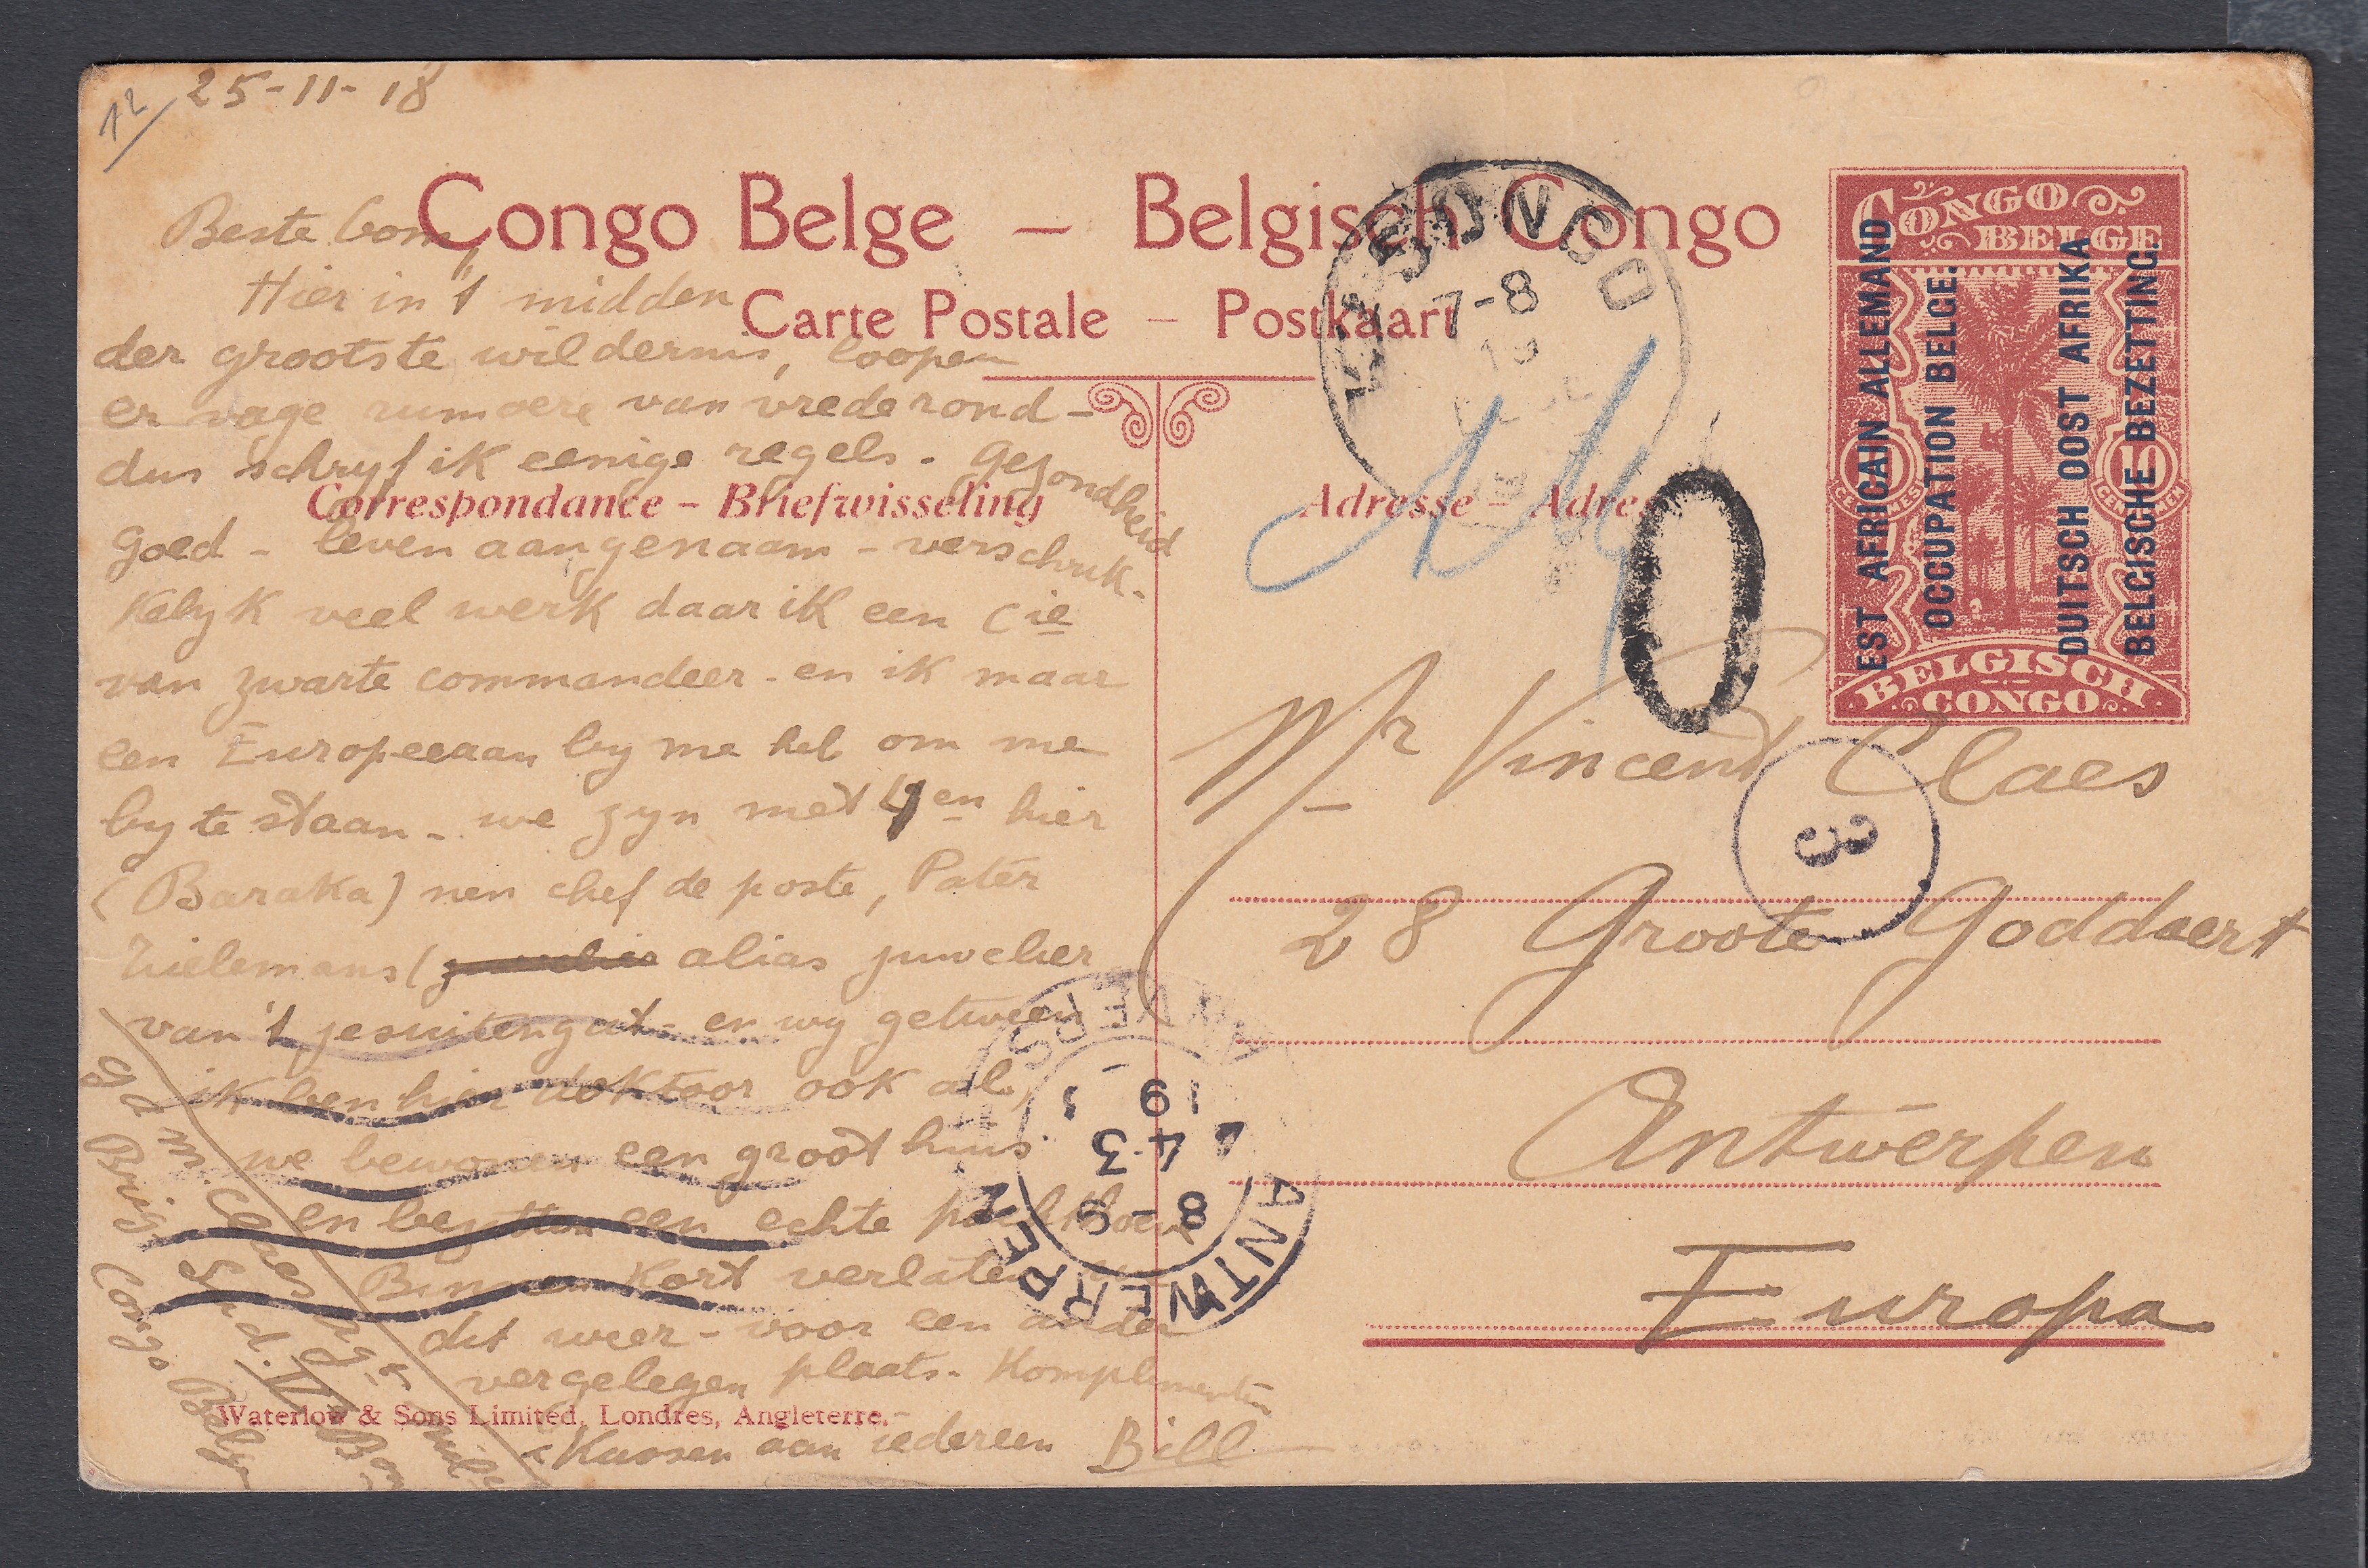 12
25-11-18
Congo Belge – Belgisch Congo
Carte Postale – Postkaart
Correspondance – Briefwisseling
Adresse – Adres
Beste Bom,
Hier in 't midden
der grootste wildernis, loopen
er vage rumoere van vrede rond –
dus schryf ik eenige regels. Gezondheid
goed – leven aangenaam – verschrik-
kelyk veel werk daar ik een Cie
van zwarte commandeer – en ik maar
een Europeeaan by me heb om me
by te staan – we zyn met 4en hier
(Baraka) nen chef de poste, Pater
Tielemans ( alias juwelier
van 't jesuitengat – en wy getween
ik ben hier doktoor ook al,
we bewonen een groot huis
en bezitten een echte
Binnen kort verlaten we
dit weer – voor een ander
vergelegen plaats. Komplimenten
& Kussen aan iedereen Bill
M. Claes
Brig. Sud. VI Bon
Congo Belge
Waterlow & Sons Limited, Londres, Angleterre.
CONGO BELGE
10 CENTIMES
10 CENTIMEN
BELGISCH CONGO
EST AFRICAIN ALLEMAND
OCCUPATION BELGE.
DUITSCH OOST AFRIKA
BELGISCHE BEZETTING.
KASONGO
7-8
19
0
3
Mr Vincent Claes
28 Groote Goddaert
Antwerpen
Europa
ANTWERPEN
8-9
4-3
19
ANVERS
1